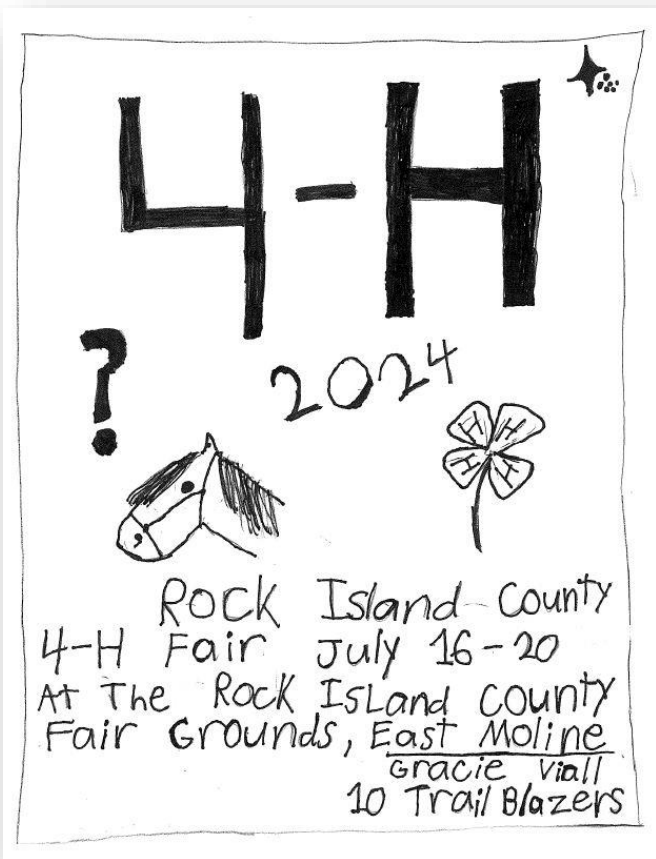 4-H
?
2024
H H
H H
Rock Island County
4-H Fair July 16-20
At The Rock Island county
Fair Grounds, East Moline
Gracie Viall
10 Trail Blazers